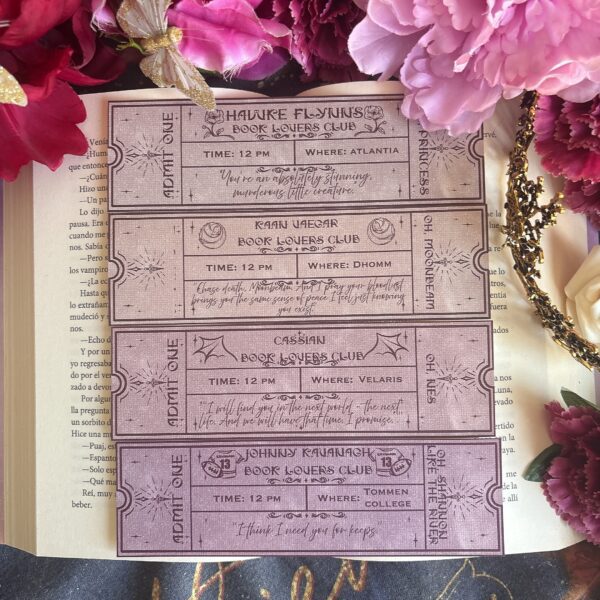 HAWKE FLYNNS
BOOK LOVERS CLUB
ADMIT ONE
TIME: 12 PM
WHERE: ATLANTIA
"You're an absolutely stunning,
murderous little creature.
PRINCESS
KAAN VAEGAR
BOOK LOVERS CLUB
TIME: 12 PM
WHERE: DHOMM
Chase death, Moonbeam. And I pray your bloodlust
brings you the same sense of peace I feel just knowing
you exist.
OH MOONBEAM
CASSIAN
BOOK LOVERS CLUB
ADMIT ONE
TIME: 12 PM
WHERE: VELARIS
"I will find you in the next world - the next
life. And we will have that time. I promise.
OH NES
JOHNNY KAVANAGH
13
13
BOOK LOVERS CLUB
ADMIT ONE
TIME: 12 PM
WHERE: TOMMEN
COLLEGE
"I think I need you for keeps.
"OH, SHANNON
LIKE THE RIVER
Venía
que
Hizo una
—Un
Lo dijo
pausa. Era
cuando me
nos. Sabía
—Pero
los
—¿La
Hasta
lo
mudeció y
—Echo
Y por un
yo regresaba
do por el
zado a
Por
lla pregunta
un sorbito
Hice una
—Puaj,
—Solo
—Qué
Reí, muy
beber.